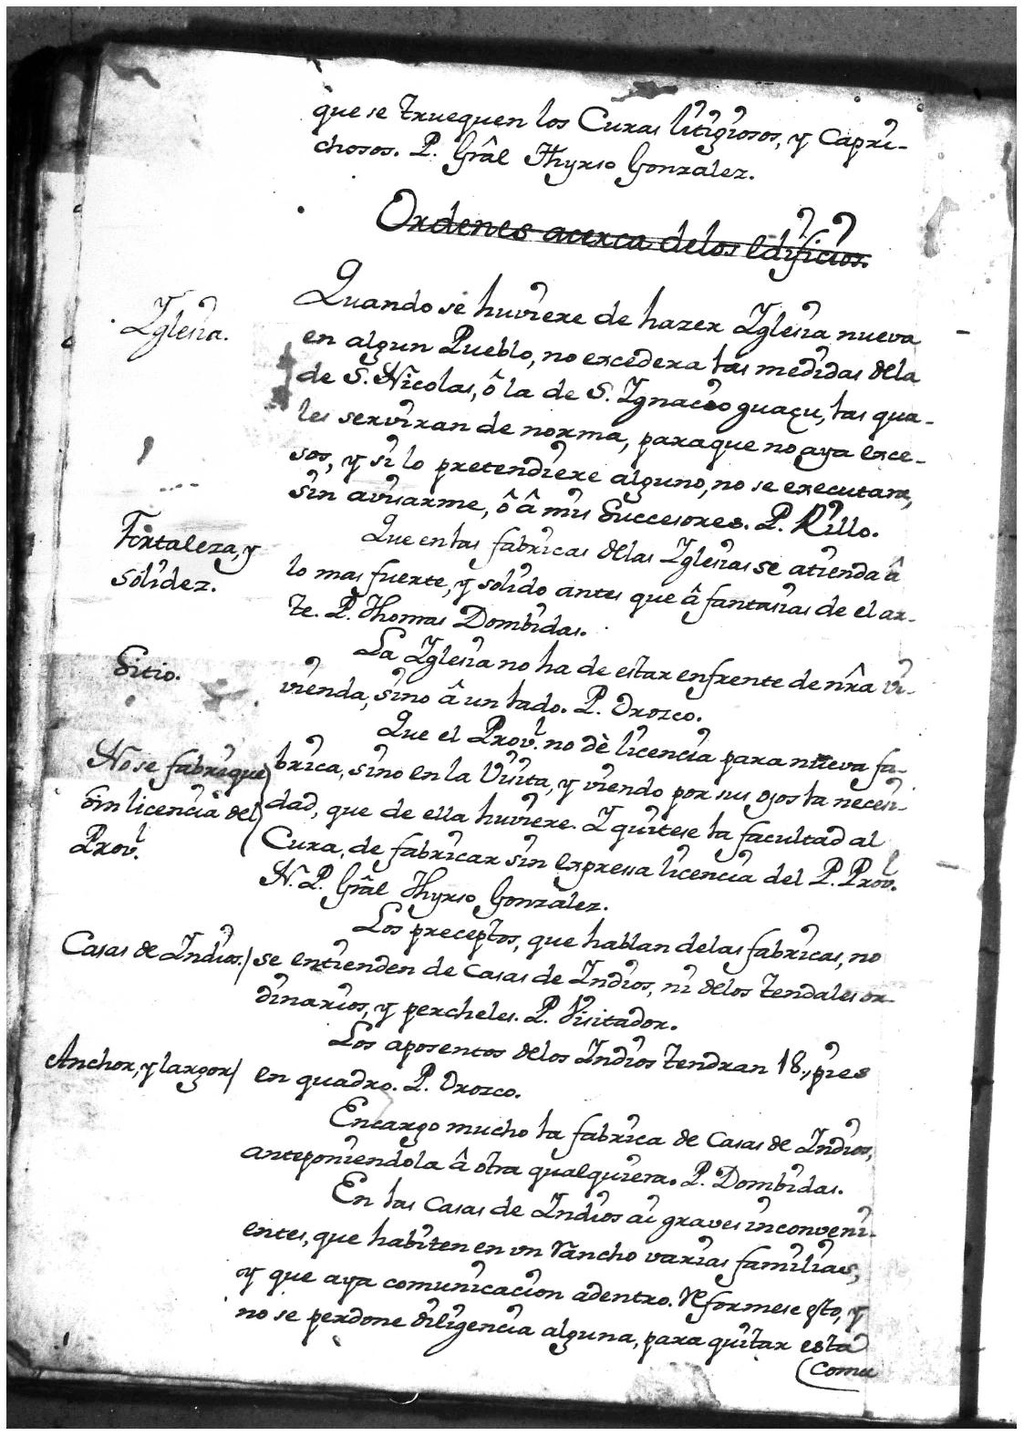 que se trueguen los Curas litigiosos, y Capri-
chosos. P. Grâl Thyrso Gonzalez.
Ordenes acerca delos edificios.
Yglesia.
Quando se huviere de hazer Yglesia nueva
en algun Pueblo, no excedera las medidas dela
de S. Nicolas, ô la de S. Ygnacio guaçu, las qua-
les serviran de norma, paraque no aya exce-
sos, y si lo pretendiere alguno, no se executara,
sin avisarme, ô â mis Successores. P. Rillo.
Fortaleza, y
solidez.
Que en las fabricas delas Yglesias se atienda â
lo mas fuerte, y solido antes que â fantasias de el ar-
te. P. Thomas Dombidas.
Sitio.
La Yglesia no ha de estar enfrente de nr̃a vi-
vienda, sino â un lado. P. Orozco.
No se fabrique
sin licencia del
Prov.l
Que el Prov.l no dè licencia para nueva fa-
brica, sino en la Visita, y viendo por sus ojos la necesi-
dad, que de ella huviere. Y quitese la facultad al
Cura, de fabricar sin expressa licencia del P. Prov.l
N. P. Grâl Thyrso Gonzalez.
Casas de Indios.
Los preceptos, que hablan delas fabricas, no
se entienden de Casas de Indios, ni delos tendales or-
dinarios, y percheles. P. Visitador.
Anchor, y largor
Los aposentos delos Indios tendran 18, pies
en quadro. P. Orozco.
Encargo mucho la fabrica de Casas de Indios,
anteponiendola â otra qualquiera. P. Dombidas.
En las Casas de Indios ai graves inconveni-
entes, que habiten en vn Rancho varias familias,
y que aya comunicacion adentro. Reformese esto, y
no se perdone diligencia alguna, para quitar esta
Comu